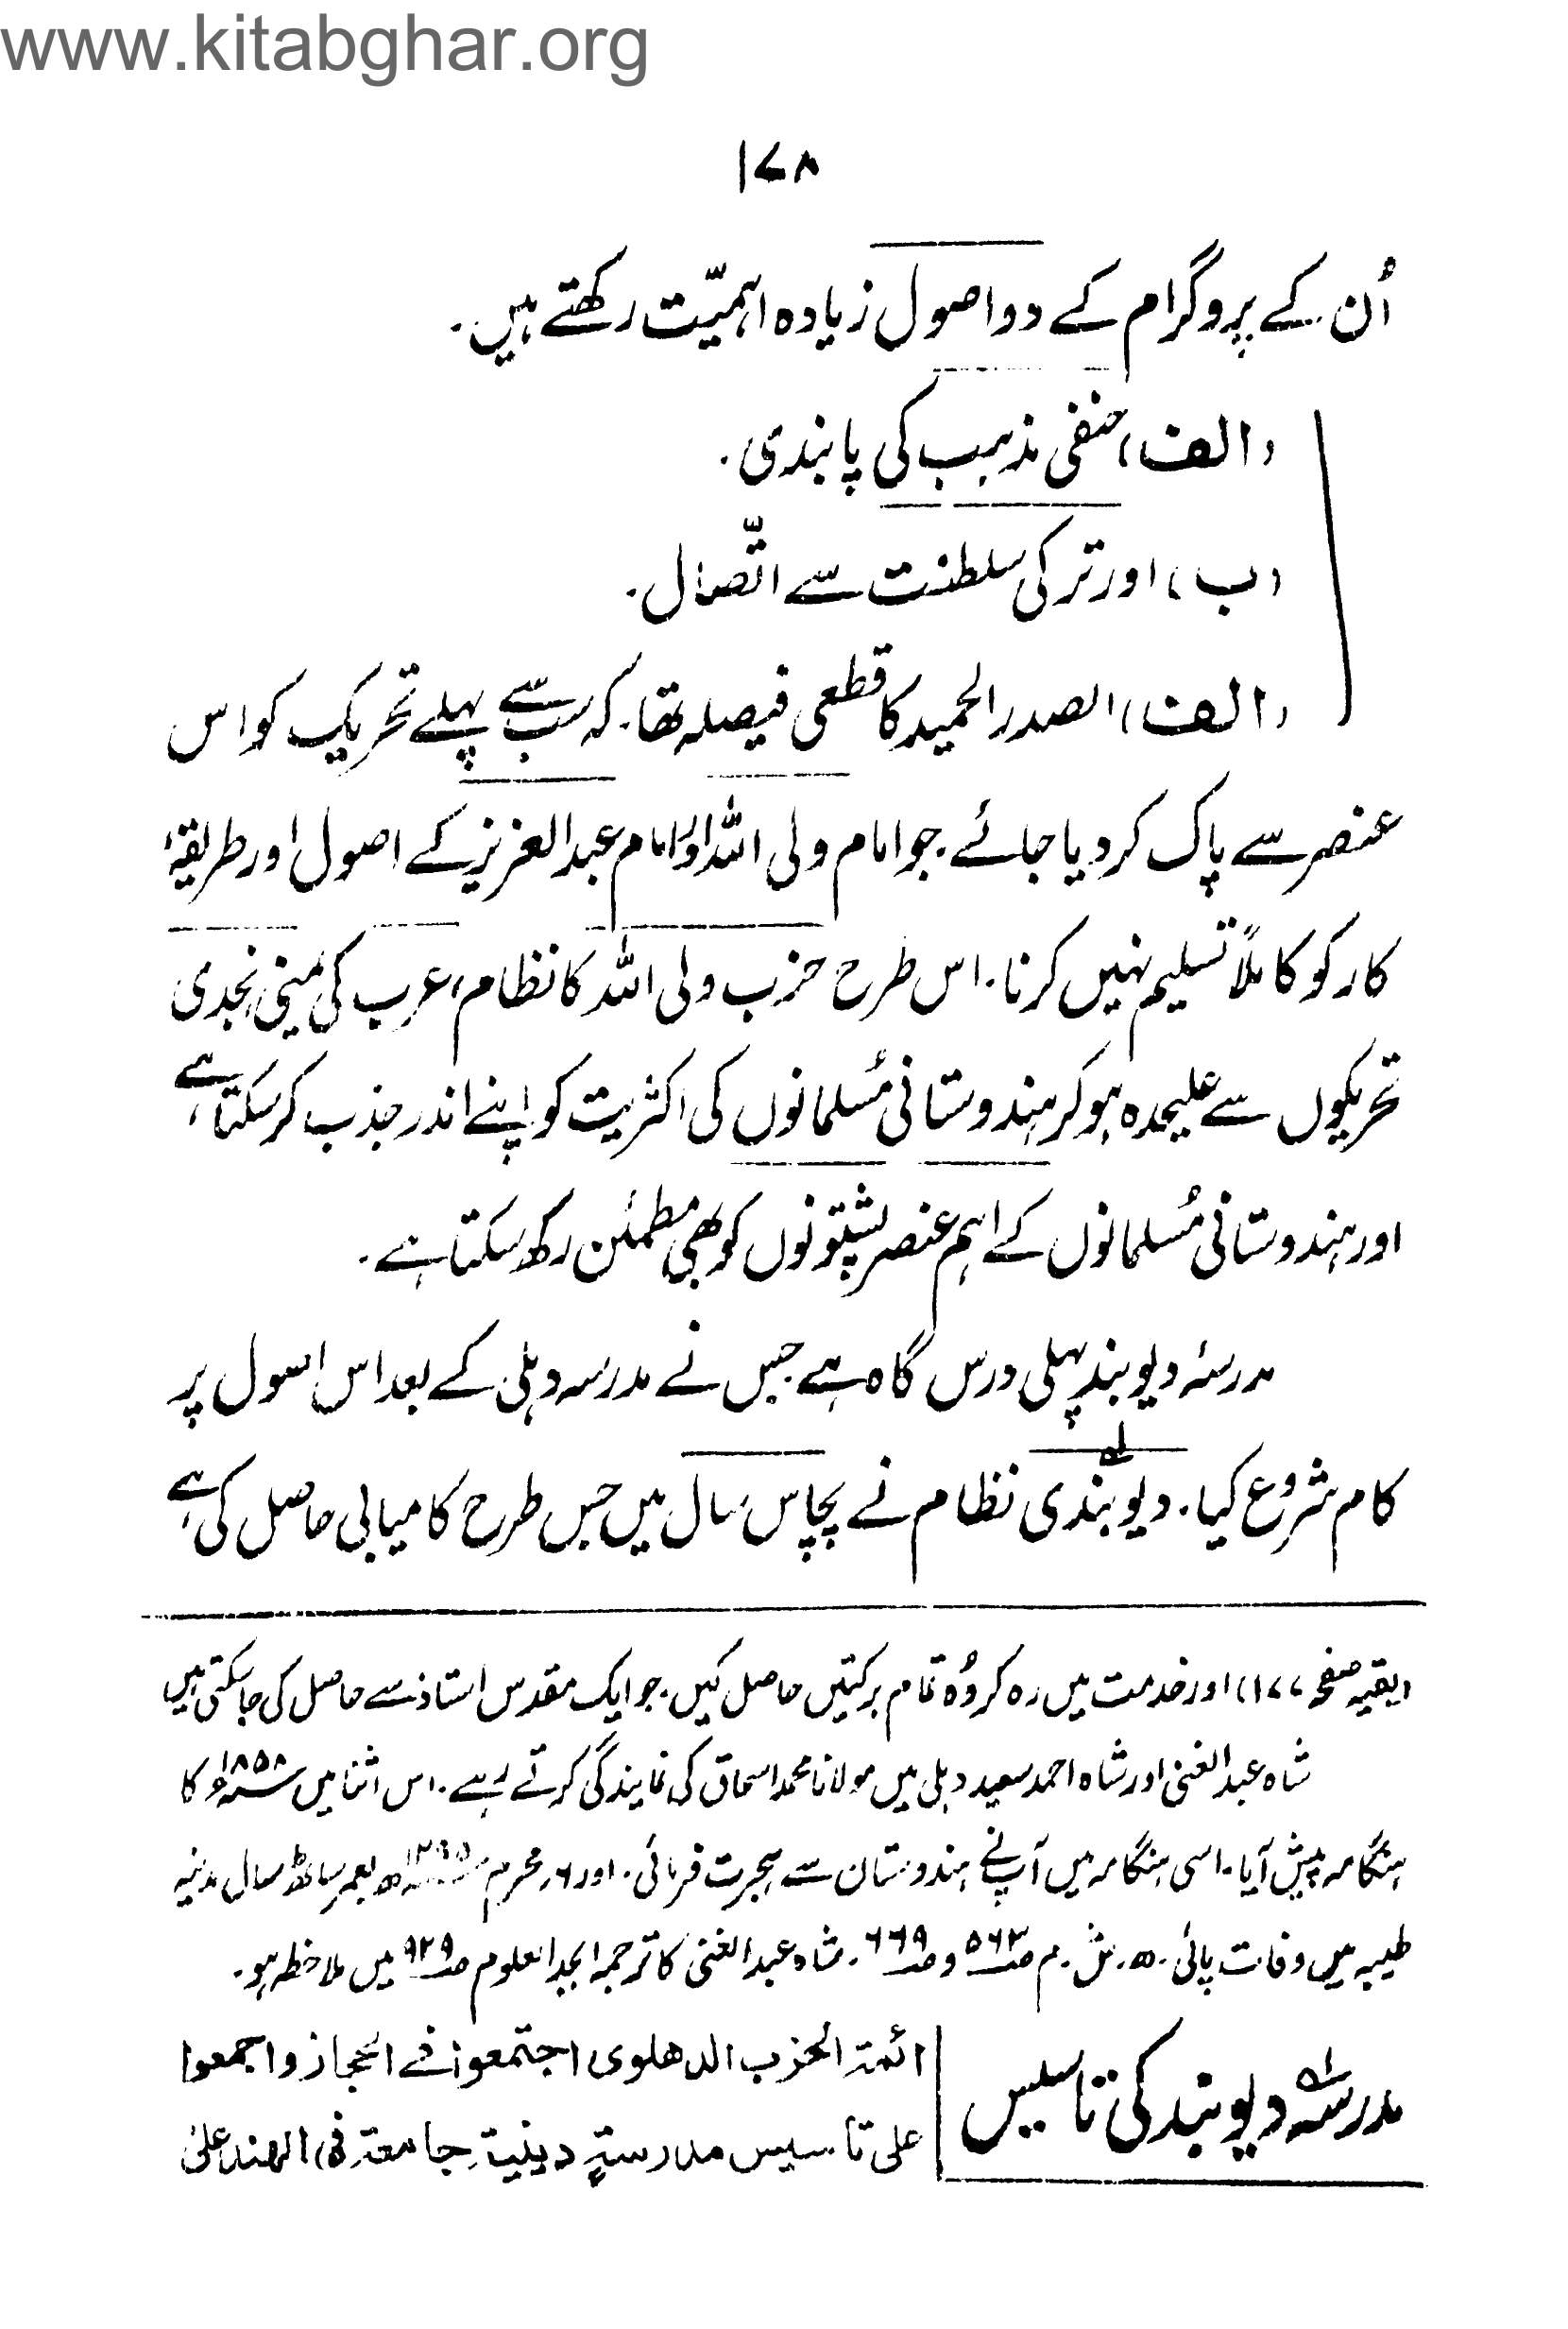 www.kitabghar.org
۱۷۸
اُن کے پروگرام کے دو اصول زیادہ اہمیّت رکھتے ہیں۔
(الف) حنفی مذہب کی پابندی۔
(ب) اور ترکی سلطنت سے اتّصال۔
(الف) الصدر الحمید کا قطعی فیصلہ تھا۔ کہ سب سے پہلے تحریک کو اس
عنصر سے پاک کر دیا جائے۔ جو امام ولی اللہ اور امام عبدالعزیز کے اصول اور طریقۂ
کار کو کاملاً تسلیم نہیں کرتا۔ اس طرح حزب ولی اللہ کا نظام، عرب کی یمنی نجدی
تحریکوں سے علیحدہ ہو کر ہندوستانی مُسلمانوں کی اکثریت کو اپنے اندر جذب کر سکتا ہے،
اور ہندوستانی مُسلمانوں کے اہم عنصر پشتونوں کو بھی مطمئن رکھ سکتا ہے۔
مدرسۂ دیوبند پہلی درس گاہ ہے جس نے مدرسہ دہلی کے بعد اس اصول پر
کام شروع کیا۔ دیوبندی لہ نظام نے پچاس سال میں جس طرح کامیابی حاصل کی ہے
(بقیہ صفحہ ۱۷۷) اور خدمت میں رہ کر وُہ تمام برکتیں حاصل کیں۔ جو ایک مقدس استاذ سے حاصل کی جا سکتی ہیں
شاہ عبدالغنی اور شاہ احمد سعید دہلی میں مولانا محمد اسحاق کی نمایندگی کرتے رہے۔ اس اثنا میں ۱۸۵۸ء کا
ہنگامہ پیش آیا۔ اسی ہنگامہ میں آپ نے ہندوستان سے ہجرت فرمائی۔ اور ۶ محرم ھ بعمر ساٹھ سال مدینہ
طیبہ میں وفات پائی۔ ھ۔ ش۔ م صـ۵۶۳ و صـ۶۶۹۔ شاہ عبدالغنی کا ترجمہ ابجد العلوم صـ۹۲۹ میں ملاحظہ ہو۔
لہ مدرسہ دیوبند کی تاسیس
ائمۃ الحزب الدھلوی اجتمعوا فی الحجاز واجمعوا
علی تاسیس مدرسۃٍ دینیۃٍ جامعۃٍ فی الھند علیٰ